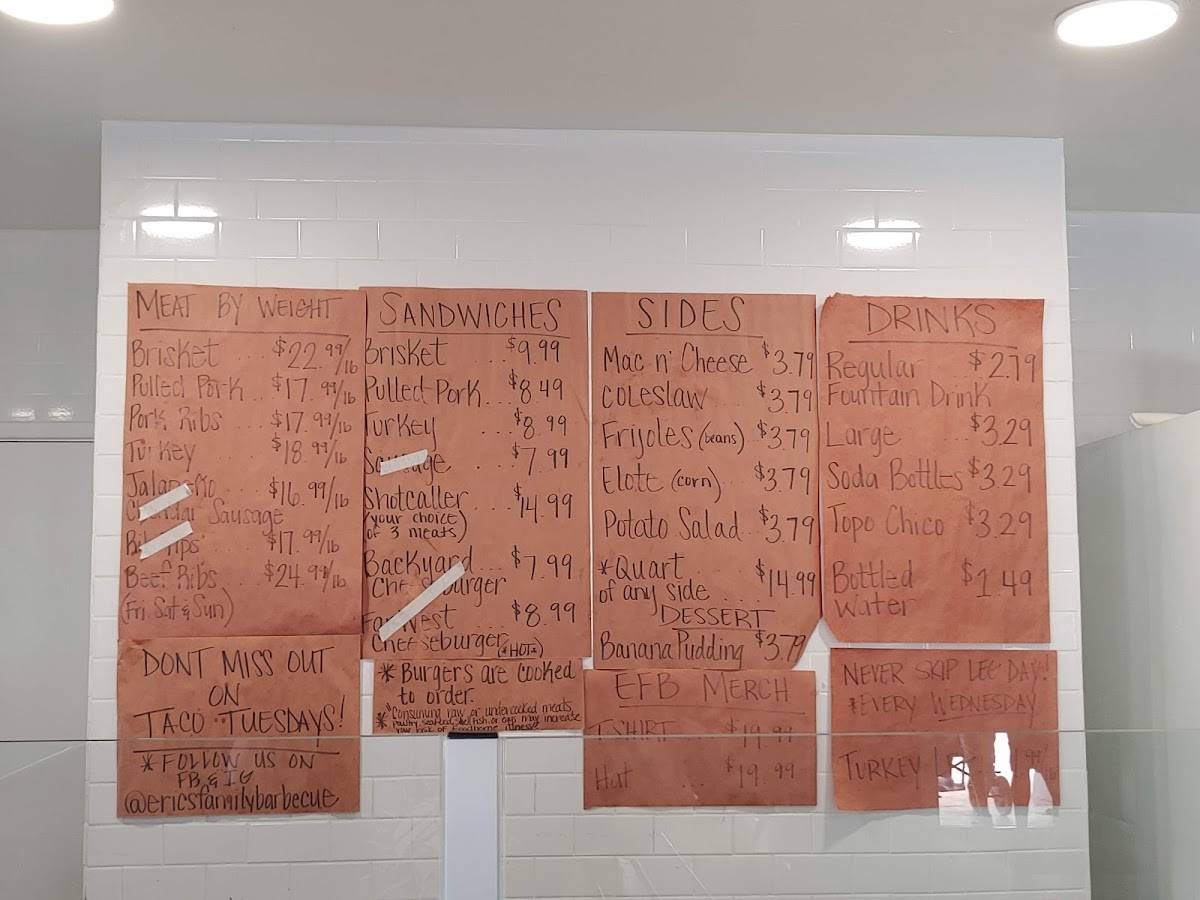 MEAT BY WEIGHT
Brisket ... $22.99/lb
Pulled Pork .. $17.99/lb
Pork Ribs ... $17.99/lb
Turkey ... $18.99/lb
Jalapeño ... $16.99/lb
Cheddar Sausage
Rib Tips ... $17.99/lb
Beef Ribs ... $24.99/lb
(Fri Sat & Sun)
DONT MISS OUT
ON
TACO TUESDAYS!
* FOLLOW US ON
FB & IG
@ericsfamilybarbecue
SANDWICHES
Brisket ... $9.99
Pulled Pork ... $8.49
Turkey ... $8.99
Sausage ... $7.99
Shotcaller ... $14.99
(your choice
of 3 meats)
Backyard ... $7.99
Cheeseburger
Far West ... $8.99
Cheeseburger (*HOT*)
* Burgers are cooked
to order.
* "Consuming raw or undercooked meats,
poultry, seafood, shellfish, or eggs may increase
your risk of foodborne illness"
SIDES
Mac n' Cheese $3.79
COLESLAW .. $3.79
Frijoles (beans) $3.79
Elote (corn) . $3.79
Potato Salad .. $3.79
*Quart
of any side ... $14.99
DESSERT
Banana Pudding $3.79
EFB MERCH
T-SHIRT ... $19.99
Hat ... $19.99
DRINKS
Regular $2.79
Fountain Drink
Large ... $3.29
Soda Bottles $3.29
Topo Chico $3.29
Bottled $1.49
Water
NEVER SKIP LEG DAY!
*EVERY WEDNESDAY
TURKEY